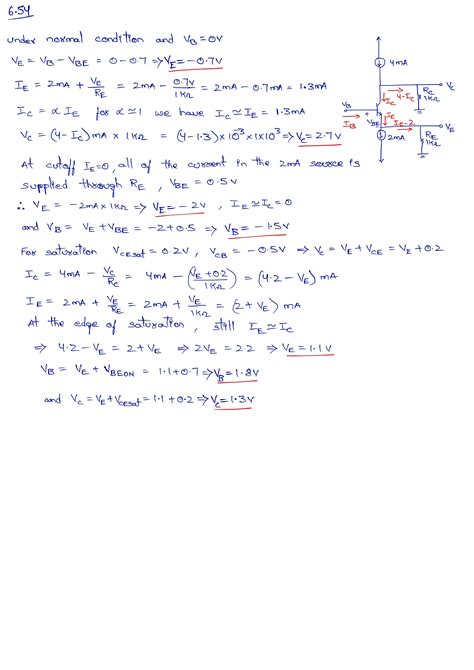 6.54
under normal condition and V_B = 0V
V_E = V_B - V_BE = 0 - 0.7 ⇒ V_E = -0.7V
I_E = 2mA + V_E/R_E = 2mA - 0.7V/1KΩ = 2mA - 0.7mA = 1.3mA
I_C = α I_E for α ≃ 1 we have I_C ≃ I_E = 1.3mA
V_C = (4 - I_C) mA × 1KΩ = (4 - 1.3) × 10^-3 × 1 × 10^3 ⇒ V_C = 2.7V
At cutoff I_E = 0, all of the current in the 2mA source is
supplied through R_E, V_BE = 0.5V
∴ V_E = -2mA × 1KΩ ⇒ V_E = -2V, I_E ≃ I_C = 0
and V_B = V_E + V_BE = -2 + 0.5 ⇒ V_B = -1.5V
For saturation V_CEsat = 0.2V, V_CB = -0.5V ⇒ V_C = V_E + V_CE = V_E + 0.2
I_C = 4mA - V_C/R_C = 4mA - (V_E + 0.2 / 1KΩ) = (4.2 - V_E) mA
I_E = 2mA + V_E/R_E = 2mA + V_E/1KΩ = (2 + V_E) mA
At the edge of saturation, still I_E ≃ I_C
⇒ 4.2 - V_E = 2 + V_E ⇒ 2V_E = 2.2 ⇒ V_E = 1.1V
V_B = V_E + V_BEON = 1.1 + 0.7 ⇒ V_B = 1.8V
and V_C = V_E + V_CEsat = 1.1 + 0.2 ⇒ V_C = 1.3V
4mA
V_C
4-I_C
R_C
1KΩ
I_C
V_B
I_B
+
V_BE
I_E
I_E-2
V_E
2mA
R_E
1KΩ